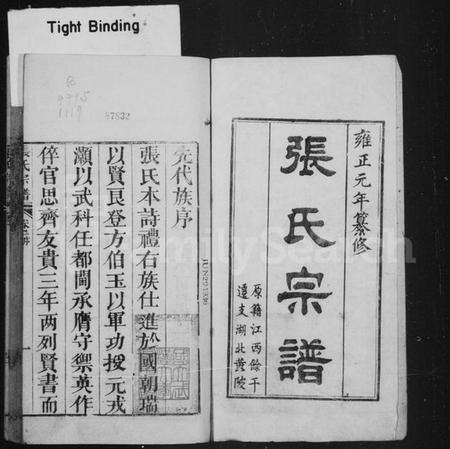 Tight Binding
雍正元年纂修
張氏宗譜
原籍江西餘干
遷支湖北黃陂
87832
元代族序
張氏本詩禮右族仕進於國朝瑞
以賢良登方伯玉以軍功授元戎
灝以武科任都閫承膺守禦英作
倅官思齊友貴三年两列賢書而
FamilySearch